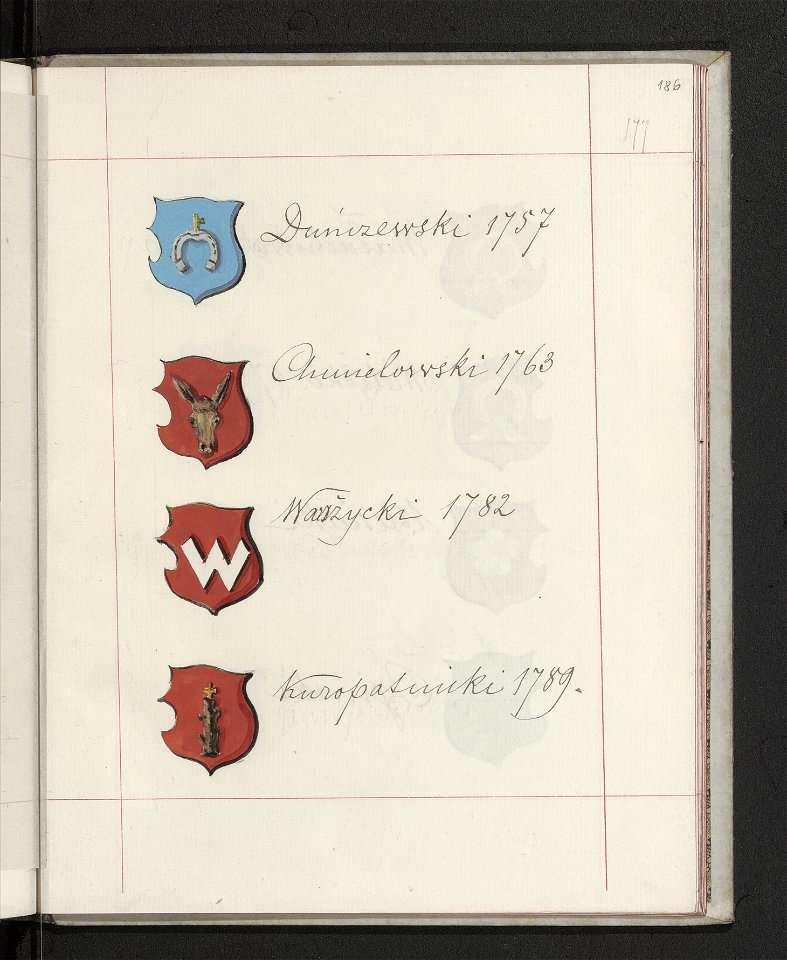 186
177
Duńczewski 1757
Chmielowski 1763
Wanżycki 1782
W
Kuropatnicki 1789.